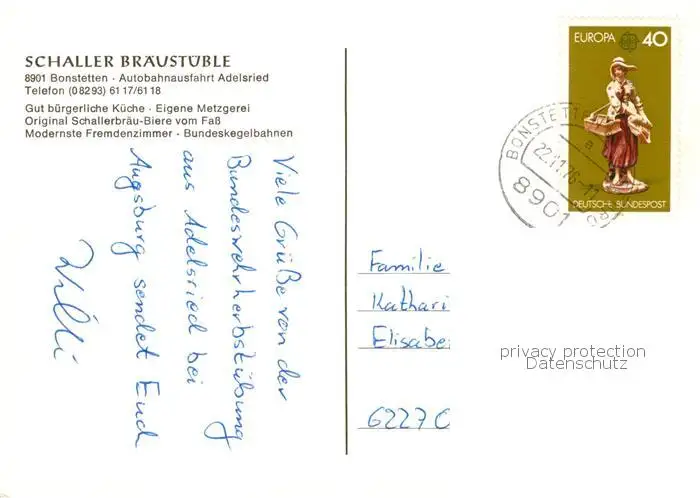 SCHALLER BRÄUSTÜBLE
8901 Bonstetten · Autobahnausfahrt Adelsried
Telefon (08293) 6117/6118
Gut bürgerliche Küche · Eigene Metzgerei
Original Schallerbräu-Biere vom Faß
Modernste Fremdenzimmer · Bundeskegelbahnen
Viele Grüße von der
Bundeswehrherbstübung
aus Adelsried bei
Augsburg sendet Euch
Willi
EUROPA 40
DEUTSCHE BUNDESPOST
BONSTETTE
a
22.11.76-17
8901
Familie
Kathari
Elisabe
6227 O
privacy protection
Datenschutz